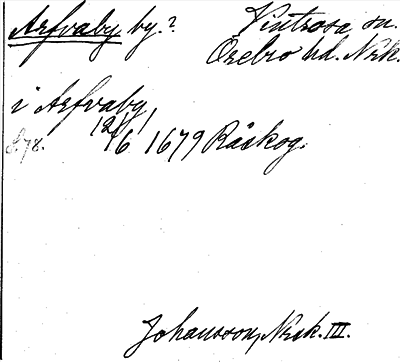 Arfvaby by.? Vintrosa sn.
Örebro hd. Nrk.
i Arfvaby,
s. 78. 12/6 1679 Räskog.
Johansson, Nrk. III.